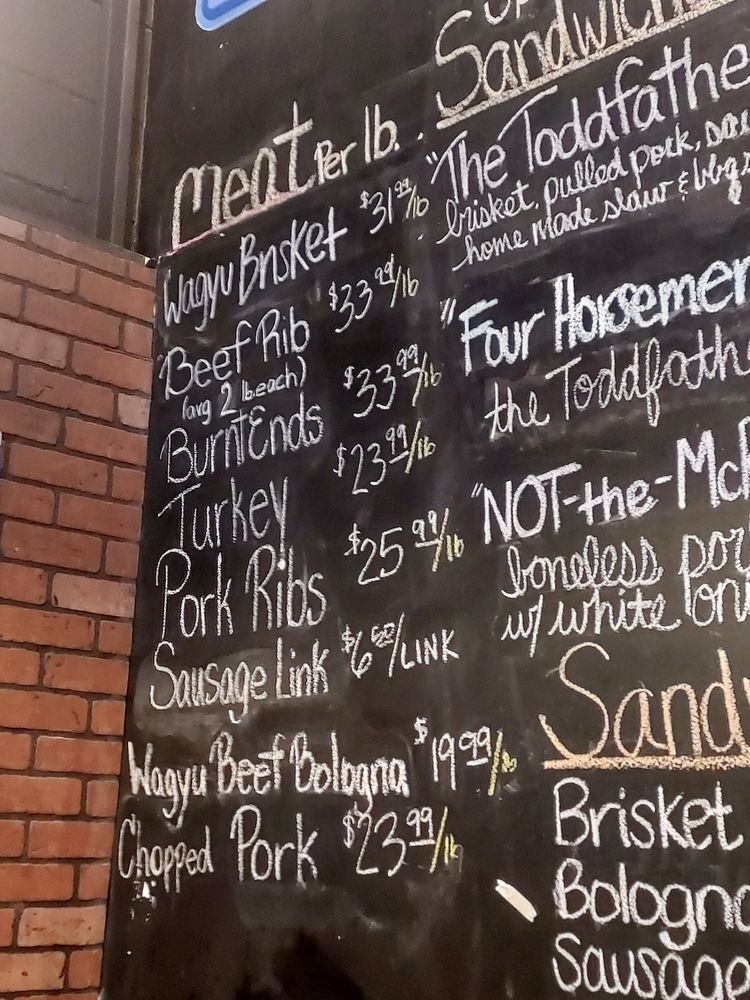 Meat Per lb.
Wagyu Brisket $31.99/lb
Beef Rib $33.99/lb
(avg 2 lb each)
Burnt Ends $33.99/lb
Turkey $23.99/lb
Pork Ribs $25.99/lb
Sausage Link $6.50/LINK
Wagyu Beef Bologna $19.99/lb
Chopped Pork $23.99/lb
"The Toddfathe
brisket, pulled pork,
home made slaw & bbq
"Four Horsemen
the Toddfath
"NOT-the-Mc
boneless por
w/ white on
Sand
Brisket
Bologna
Sausage